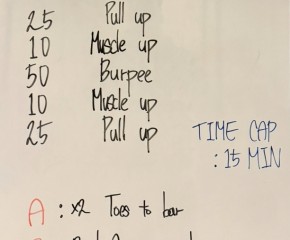 25 Pull up
10 Muscle up
50 Burpee
10 Muscle up
25 Pull up
TIME CAP
: 15 MIN
A : x2 Toes to bar